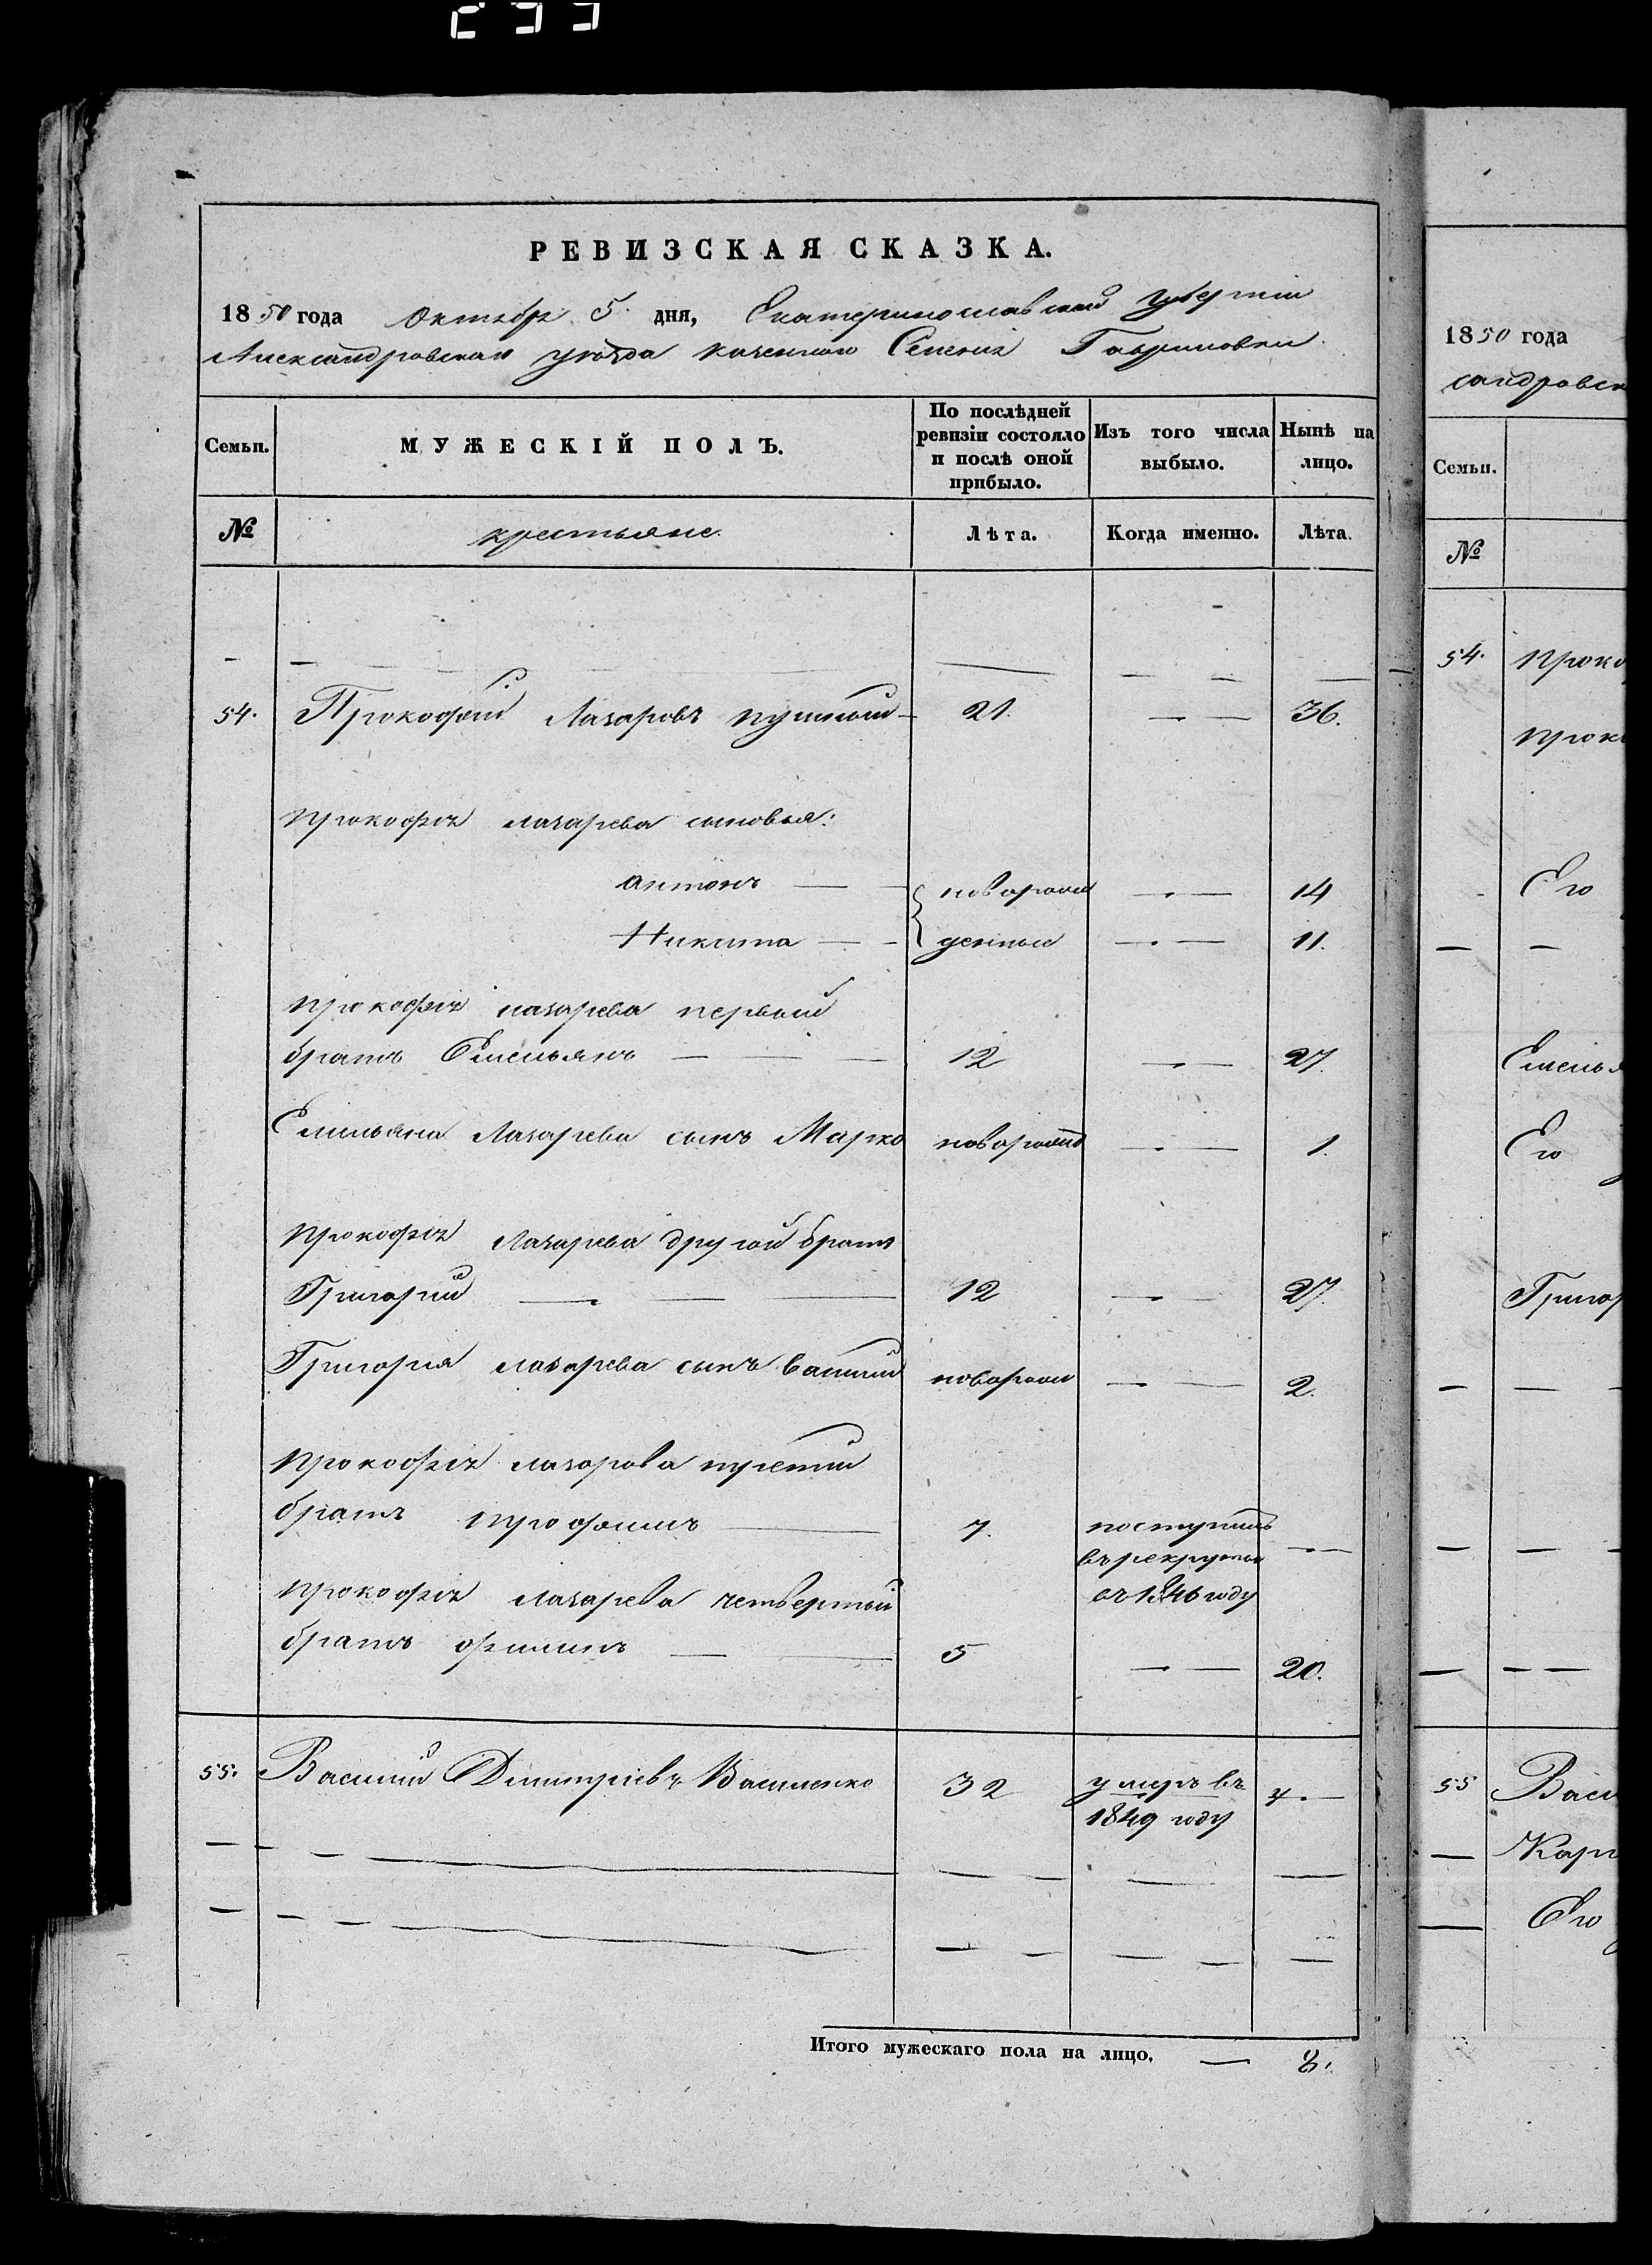 РЕВИЗСКАЯ СКАЗКА.
1850 года Октября 5. дня, Екатеринославской губернiи
Александровскаго уѣзда казеннаго Селенiя Гавриловки
Семьи. МУЖЕСКІЙ ПОЛЪ. По послѣдней ревизіи состояло и послѣ оной прибыло. Изъ того числа выбыло. Нынѣ на лицо.
№ крестьяне. Лѣта. Когда именно. Лѣта.
54. Прокофiй Лазаревъ 21. 36.
Прокофiя лазарева сыновья:
антонъ новорож 14
Никита денные 11.
Прокофiя лазарева первый
братъ Емельянъ 12 27.
Емельяна Лазарева сынъ Марко новорожд 1.
Прокофiя Лазарева другой братъ
Григорiй 12 27.
Григорiя лазарева сынъ василий новорож 2.
Прокофiя лазарева третiй
братъ трофимъ 7. поступилъ
въ рекруты
Прокофiя лазарева четвертый въ 1846 году
братъ филипъ 5 20.
55. Василий Димитрiевъ Василенко 32 умеръ въ
1849 году
Итого мужескаго пола на лицо. 8.
1850 года
сандровск
Семьи.
№
54. Проко
Прок
Его
Емелья
Его
Григор
55 Васи
Его